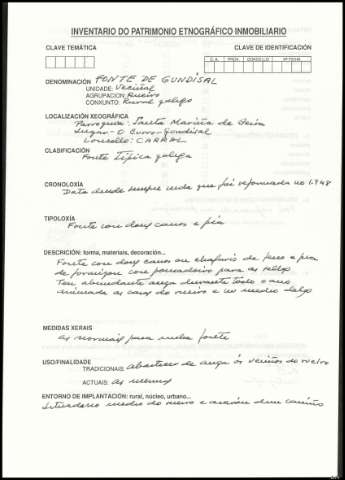 INVENTARIO DO PATRIMONIO ETNOGRÁFICO INMOBILIARIO
CLAVE TEMÁTICA CLAVE DE IDENTIFICACIÓN
C.A. PROV. CONCELLO Nº FICHA
DENOMINACIÓN FONTE DE GUNDISAL
UNIDADE: Veciñal
AGRUPACION: Rueiro
CONXUNTO: Rural galego
LOCALIZACIÓN XEOGRÁFICA
Parroquia: Santa Mariña de
Lugar - O Gundisal
Concello: CARBAL
CLASIFICACIÓN
Fonte Típica galega
CRONOLOXÍA
Data dende sempre inda que foi reformada no 1.948
TIPOLOXÍA
Fonte con dous canos e pía
DESCRICIÓN: forma, materiais, decoración...
Fonte con dous canos ou de ferro e pía
de formigon con pousadoiro para as sellas
Ten abundante auga durante todo o ano
as casas do rueiro e no medio
MEDIDAS XERAIS
as normais para unha fonte
USO/FINALIDADE
TRADICIONAIS: abastecer de auga ós veciños do rueiro
ACTUAIS: as mesmas
ENTORNO DE IMPLANTACIÓN: rural, núcleo, urbano...
medio do rueiro e dun camiño